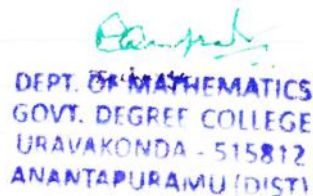 DEPT. OF MATHEMATICS
GOVT. DEGREE COLLEGE
URAVAKONDA - 515812
ANANTAPURAMU (DIST)